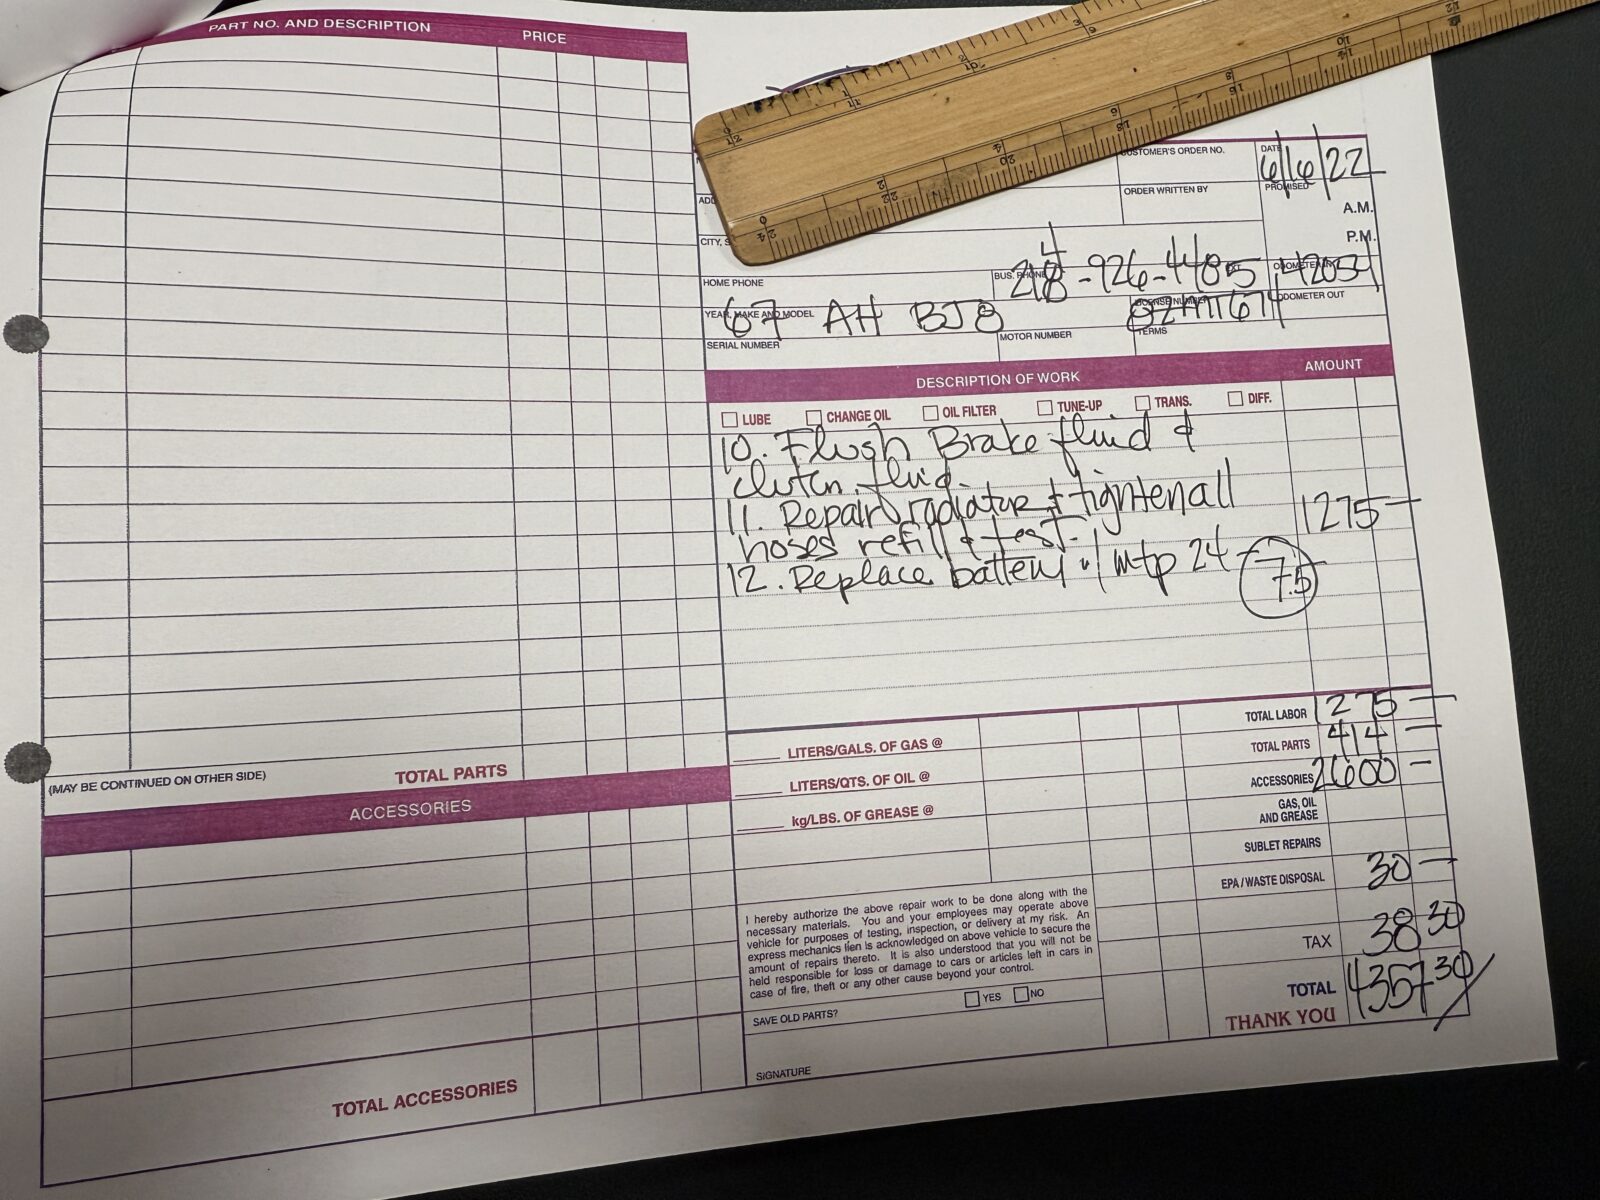 PART NO. AND DESCRIPTION PRICE
(MAY BE CONTINUED ON OTHER SIDE) TOTAL PARTS
ACCESSORIES
TOTAL ACCESSORIES
CUSTOMER'S ORDER NO.
DATE 6/16/22
ORDER WRITTEN BY
PROMISED
A.M.
P.M.
CITY, S
HOME PHONE
BUS. PHONE 218-926-4485
4
ODOMETER IN 42054
YEAR, MAKE AND MODEL 67 AH BJ8
LICENSE NUMBER
ODOMETER OUT
SERIAL NUMBER
MOTOR NUMBER
TERMS
DESCRIPTION OF WORK AMOUNT
LUBE CHANGE OIL OIL FILTER TUNE-UP TRANS. DIFF.
10. Flush Brake fluid &
clutch fluid.
11. Repair radiator & tighten all
hoses refill & test. 1275 —
12. Replace battery w/ mtp 24 — 7.5
TOTAL LABOR 1275 —
LITERS/GALS. OF GAS @
TOTAL PARTS 414 —
LITERS/QTS. OF OIL @
ACCESSORIES 2600 —
kg/LBS. OF GREASE @
GAS, OIL
AND GREASE
SUBLET REPAIRS
EPA/WASTE DISPOSAL 30 —
I hereby authorize the above repair work to be done along with the
necessary materials. You and your employees may operate above
vehicle for purposes of testing, inspection, or delivery at my risk. An
express mechanics lien is acknowledged on above vehicle to secure the
amount of repairs thereto. It is also understood that you will not be
held responsible for loss or damage to cars or articles left in cars in
case of fire, theft or any other cause beyond your control.
TAX 38 30
TOTAL 4357 30
SAVE OLD PARTS? YES NO
THANK YOU
SIGNATURE